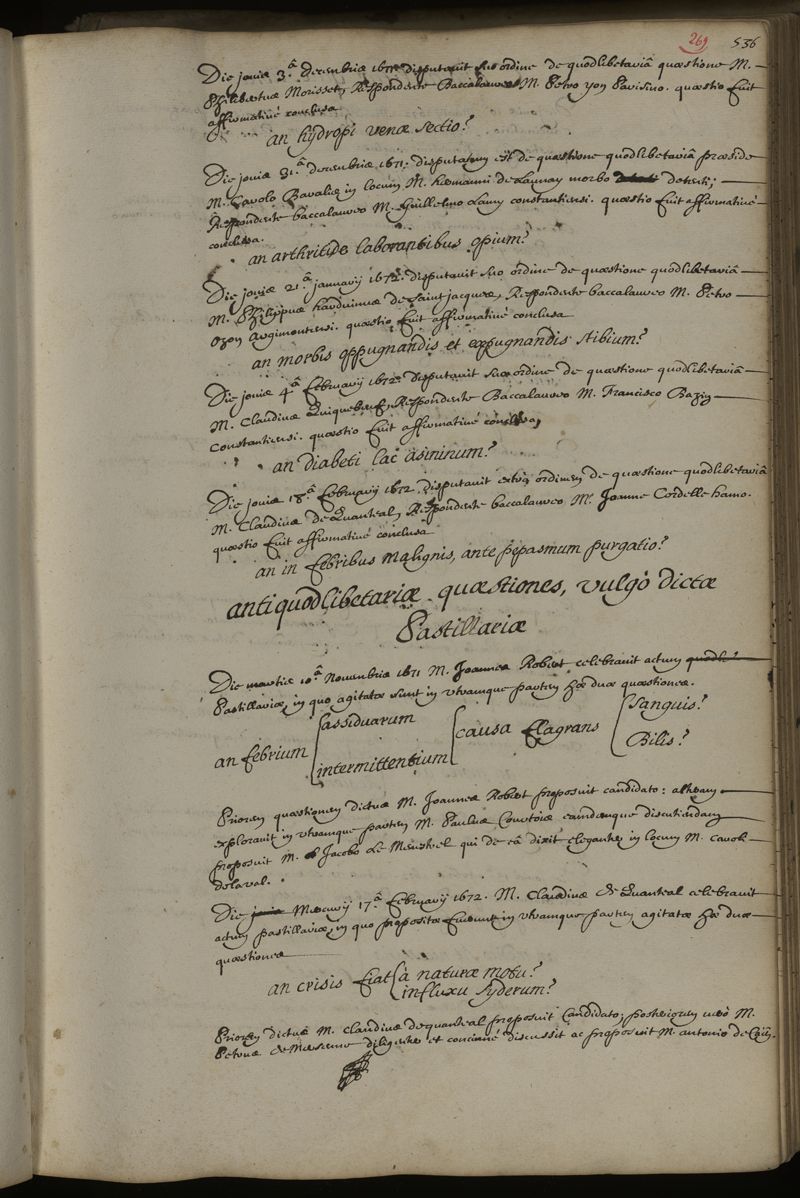 269 536
Die jovis 3.ª decembris 1671 disputavit suo ordine de quodlibetariâ quæstione M.
Philibertus Morisset, Respondente Baccalaureo M. Petro yon Parisino. quæstio fuit
affirmativè conclusa
an hydropi venæ sectio?
Die jovis 31.ª decembris 1671. disputatum est de quæstione quodlibetariâ præside
M. Carolo Barralis in locum M. hermanni de Launay morbo detenti;
Respondente baccalaureo M. Guillelmo Lamy constantiensi. quæstio fuit affirmativè
conclusa.
an arthritide laborantibus opium?
Die jovis 21.ª januarij 1672. disputavit suo ordine de quæstione quodlibetariâ
M. Philippus harduinus de Saint jacques, Respondente baccalaureo M. Petro
ozon Argimontensi. quæstio fuit affirmativè conclusa
an morbis oppugnandis et expugnandis stibium?
Die jovis 4.ª februarij 1672. disputavit suo ordine de quæstione quodlibetariâ
M. Claudius Quiquebeuf, Respondente Baccalaureo M. Francisco Bazin
Constantiensi. quæstio fuit affirmativè conclusa
an diabeti lac asininum?
Die jovis 18.ª februarij 1672. disputavit extra ordinem de quæstione quodlibetariâ
M. Claudius de Quanteal, Respondente baccalaureo M. Joanne Cordelle hamo.
quæstio fuit affirmativè conclusa
an in febribus malignis, ante pepasmum purgatio?
antiquodlibetariæ quæstiones, vulgò dictæ
Pastillariæ
Die martis 10.ª Novembris 1671 M. Joannes Robert celebravit actum
Pastillariæ, in quo agitatæ sunt in utramque partem hæ duæ quæstiones.
an febrium assiduarum intermittentium causa flagrans Sanguis? Bilis?
Priorem quæstionem dictus M. Joannes Robert proposuit candidato: alteram
exploravit in utramque partem M. Paulus Courtois eamdemque discutiendam
proposuit M. Jacobo Le Menstrel qui de eâ dixit eleganter in locum M. caroli
delaval.
Die Mercurij 17.ª februarij 1672. M. Claudius de Quanteal celebravit
actum pastillariæ, in quo propositæ fuerunt in utramque partem agitatæ hæ duæ
quæstiones
an crisis fiat à naturæ motu?
influxu syderum?
Priorem dictus M. Claudius dequanteal proposuit Candidato; posteriorem verò M.
Petrus diligenter et concinnè discussit ac proposuit M. antonio de